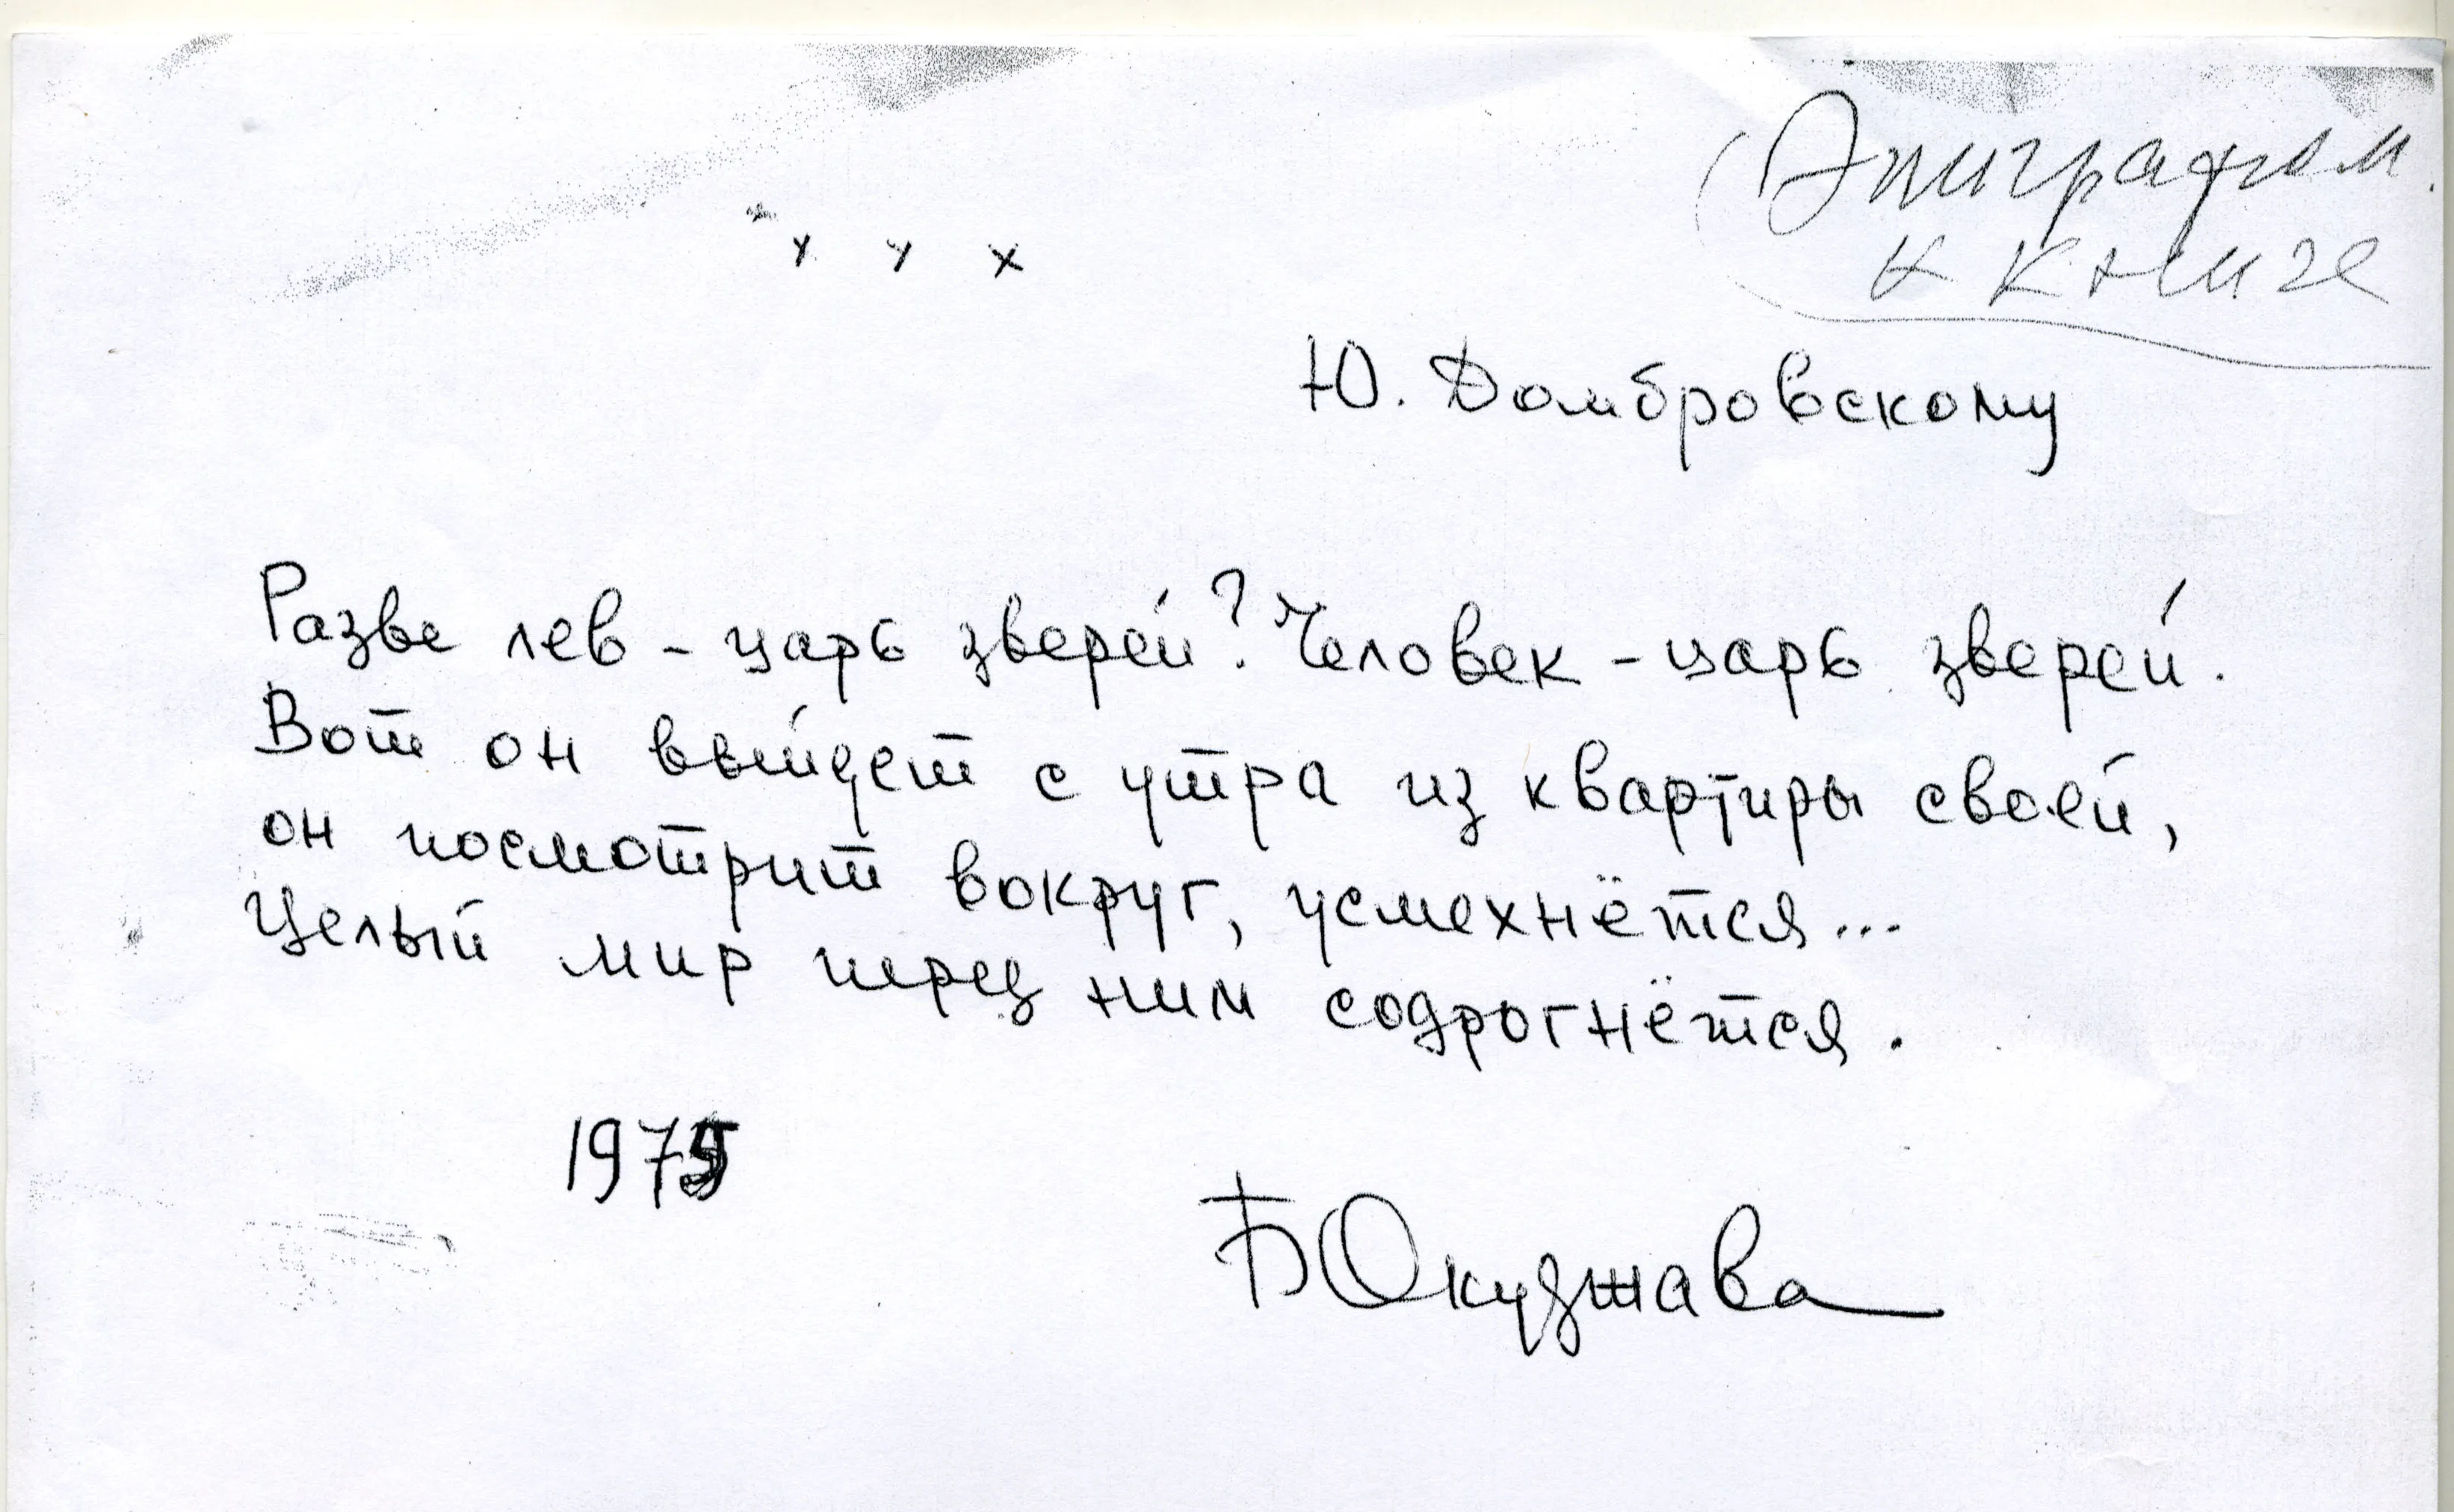 Эпиграфом
к книге
х х х
Ю. Домбровскому
Разве лев - царь зверей? Человек - царь зверей.
Вот он выйдет с утра из квартиры своей,
он посмотрит вокруг, усмехнётся...
Целый мир перед ним содрогнётся.
1975
Б Окуджава